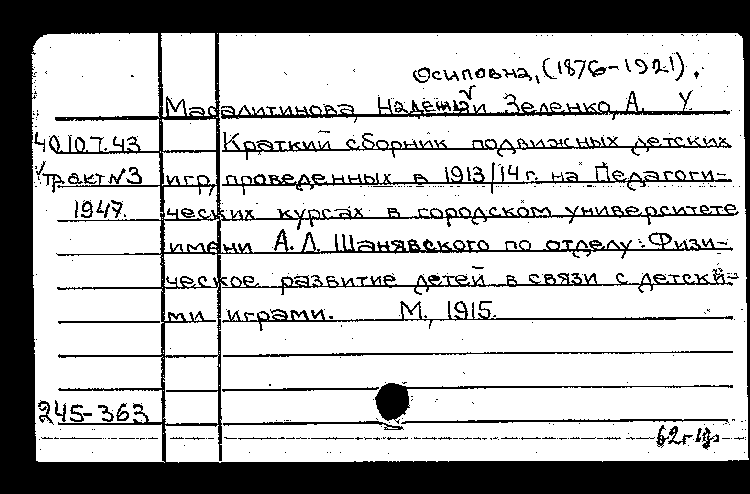 Осиповна, (1876-1921).
Масалитинова, Надежда и Зеленко, А. У
40.10.7.43 Краткий сборник подвижных детских
тракт №3 игр, проведенных в 1913/14 г. на Педагоги-
1947. ческих курсах в городском университете
имени А. Л. Шанявского по отделу: Физи-
ческое развитие детей в связи с детски-
ми играми. М., 1915.
245-363